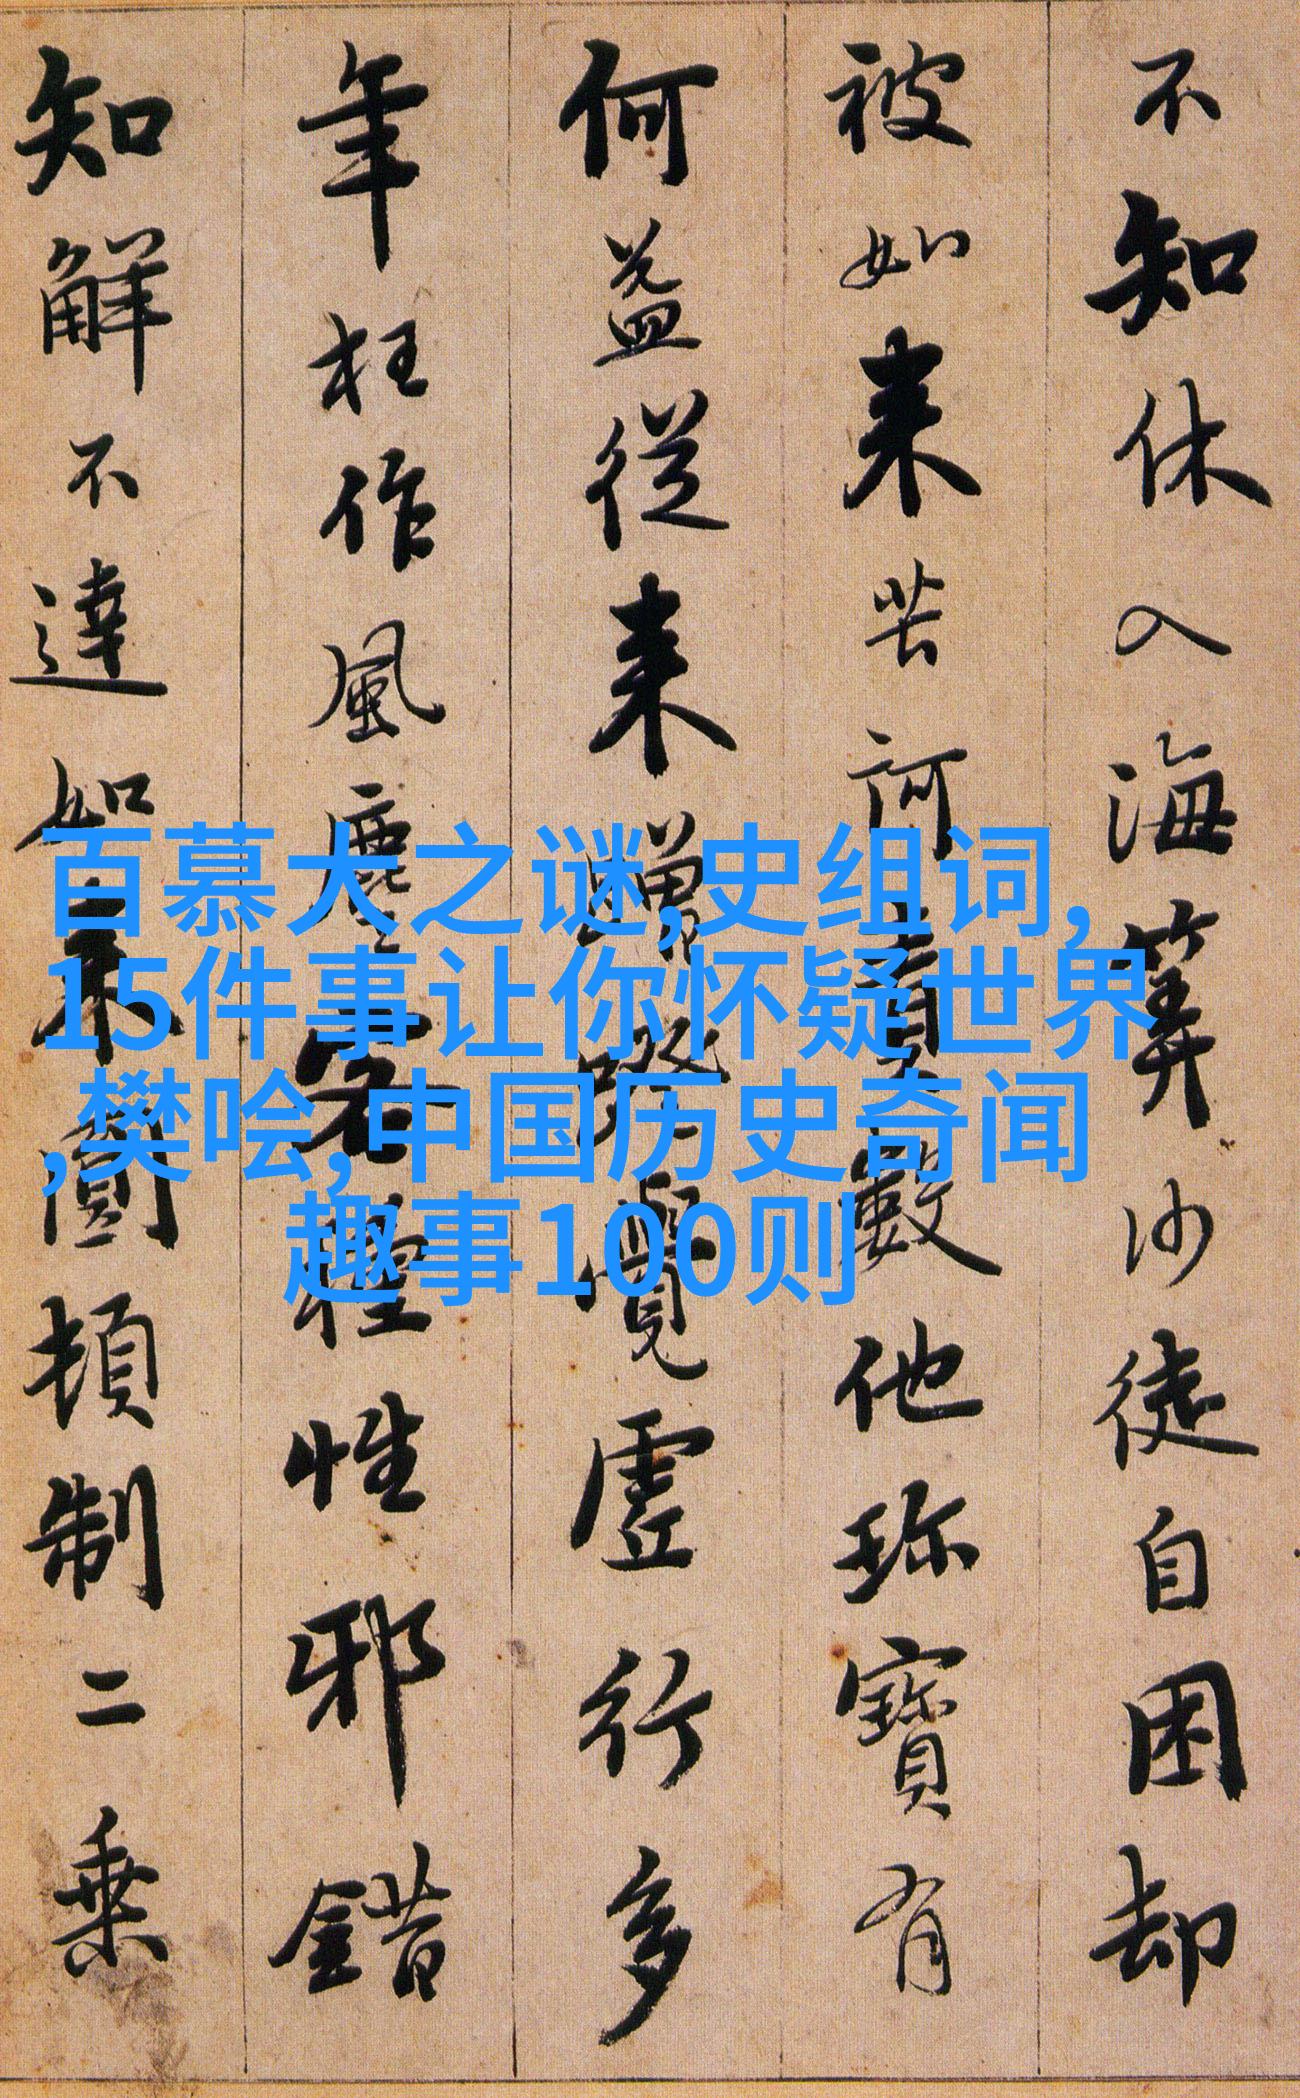 不知休入海筭沙徒自困却
被如来苦訶責數他珎寶有
何益從来蹭蹬覺虛行多
年枉作風塵客種性邪錯
知解不達如来圓頓制二乗
百慕大之谜,史组词,
15件事让你怀疑世界
,樊哙,中国历史奇闻
趣事100则